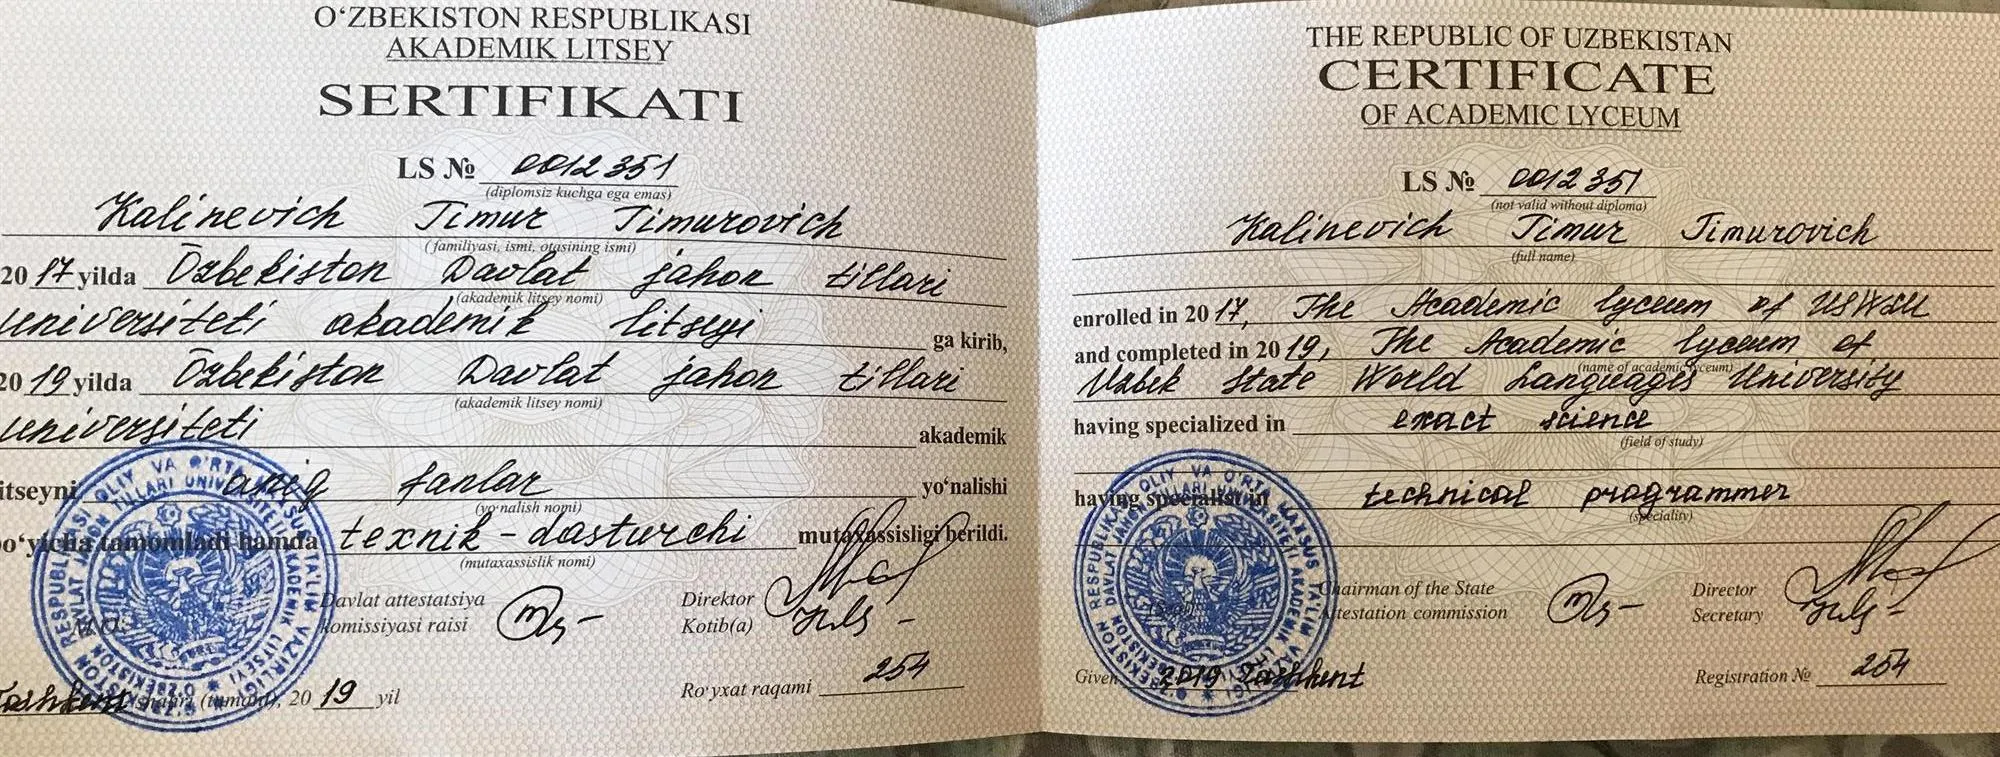 O‘ZBEKISTON RESPUBLIKASI
AKADEMIK LITSEY
SERTIFIKATI
LS № 0012351
(diplomsiz kuchga ega emas)
Kalinevich Timur Timurovich
(familiyasi, ismi, otasining ismi)
2017 yilda Ōzbekiston Davlat jahon tillari
(akademik litsey nomi)
universiteti akademik litseyi ga kirib,
2019 yilda Ōzbekiston Davlat jahon tillari
(akademik litsey nomi)
universiteti akademik
itseyni aniq fanlar yo‘nalishi
(yo‘nalish nomi)
bo‘yicha tamomladi hamda texnik-dasturchi mutaxassisligi berildi.
(mutaxassislik nomi)
Davlat attestatsiya
komissiyasi raisi
Direktor
Kotib(a)
M.O‘.
Ro‘yxat raqami 254
Tashkent shahri (tumani), 2019 yil
THE REPUBLIC OF UZBEKISTAN
CERTIFICATE
OF ACADEMIC LYCEUM
LS № 0012351
(not valid without diploma)
Kalinevich Timur Timurovich
(full name)
enrolled in 2017, The Academic lyceum of USWLU
and completed in 2019, The Academic lyceum of
(name of academic lyceum)
Uzbek State World Languages University
having specialized in exact science
(field of study)
having specialist in technical programmer
(speciality)
Chairman of the State
Attestation commission
Director
Secretary
(Seal)
Given 2019 Tashkent
Registration № 254